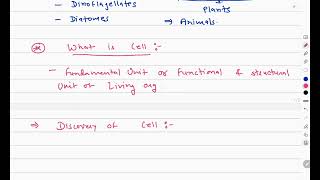 - Dinoflagellates
- Diatomes
Plants
→ Animals.
* What is Cell :-
- Fundamental Unit or Functional & structural
Unit of Living org
⇒ Discovery of Cell :-